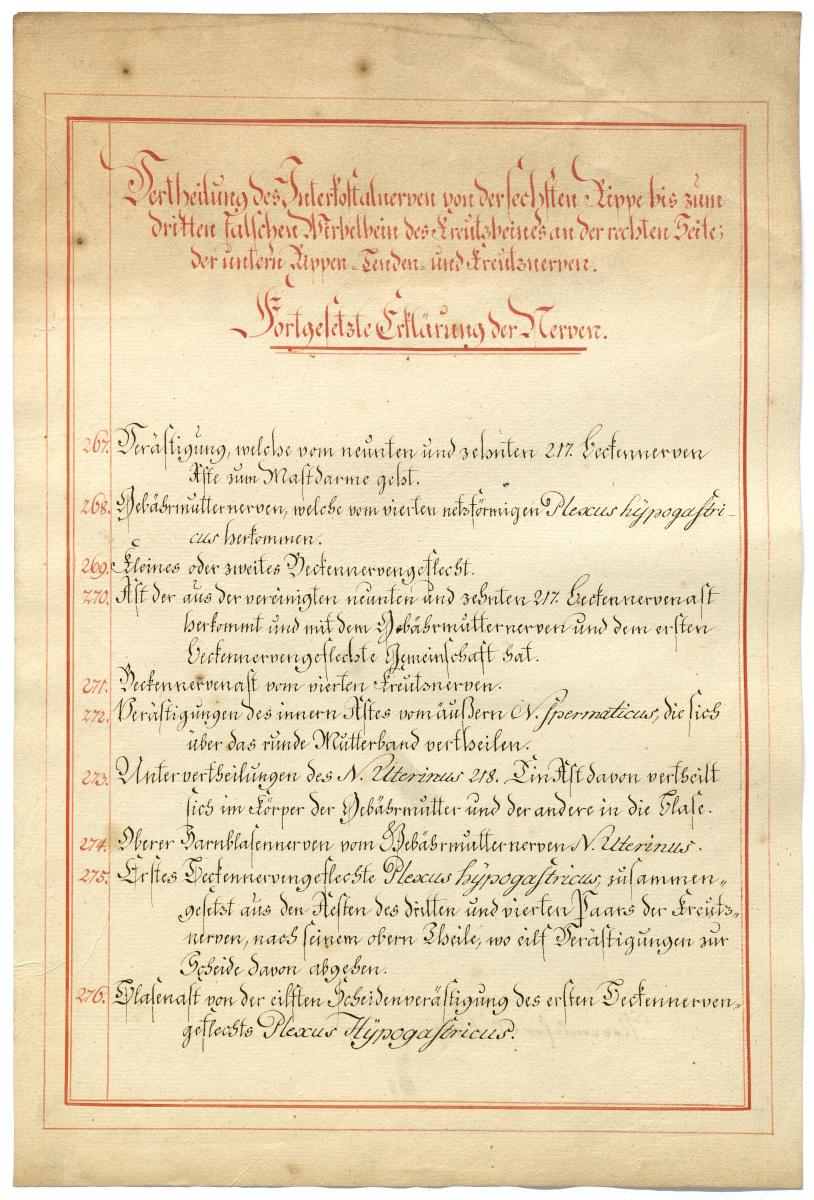 Vertheilung des Interkostalnerven von der sechsten Rippe bis zum
dritten falschen Wirbelbein des Kreutzbeines an der rechten Seite;
der untern Rippen- Lenden- und Kreutznerven.
Fortgesetzte Erklärung der Nerven.
267. Verästigung, welche vom neunten und zehnten 217. Beckennerven
Äste zum Mastdarme geht.
268. Gebährmutternerven, welche vom vierten netzförmigen Plexus hÿpogastri-
cus herkommen.
269. Kleines oder zweites Beckennervengeflecht.
270. Ast der aus der vereinigten neunten und zehnten 217. Beckennervenast
herkommt und mit dem Gebährmutternerven und dem ersten
Beckennervengeflechte Gemeinschaft hat.
271. Beckennervenast vom vierten Kreutznerven.
272. Verästigungen des innern Astes vom äußern N. Spermaticus, die sich
über das runde Mutterband vertheilen.
273. Untervertheilungen des N. Uterinus 218. Ein Ast davon vertheilt
sich im Körper der Gebährmutter und der andere in die Blase.
274. Oberer Harnblasennerven vom Gebährmutternerven N. Uterinus.
275. Erstes Beckennervengeflechte Plexus hÿpogastricus, zusammen-
gesetzt aus den Aesten des dritten und vierten Paars der Kreutz-
nerven, nach seinem obern Theile, wo eilf Verästigungen zur
Scheide davon abgehen.
276. Blasenast von der eilften Scheidenverästigung des ersten Beckennerven-
geflechts Plexus Hÿpogastricus.